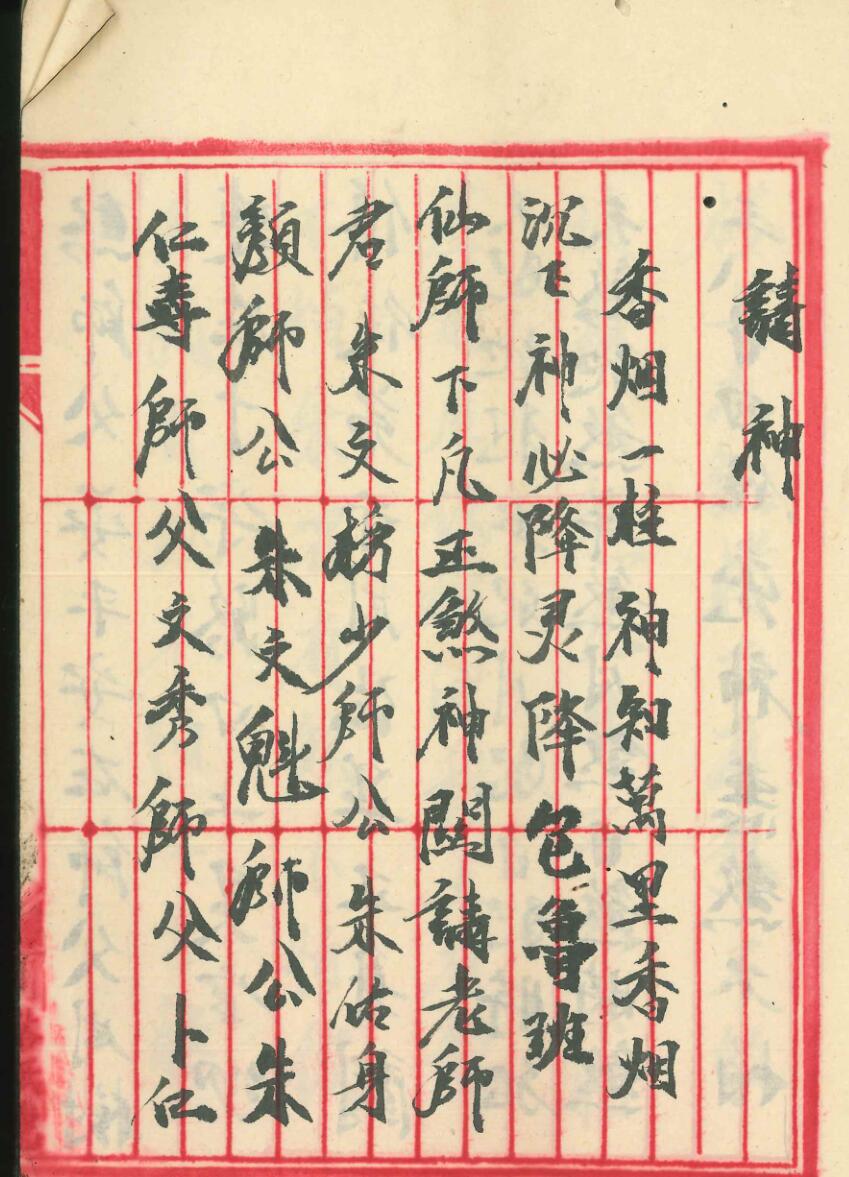 請神
香烟一柱神知萬里香烟
沉沉神必降灵降包魯班
仙師下凡正煞神関請老師
君朱文榜少師公朱佑身
顏師公朱文魁師公朱
仁壽師父文秀師父卜仁